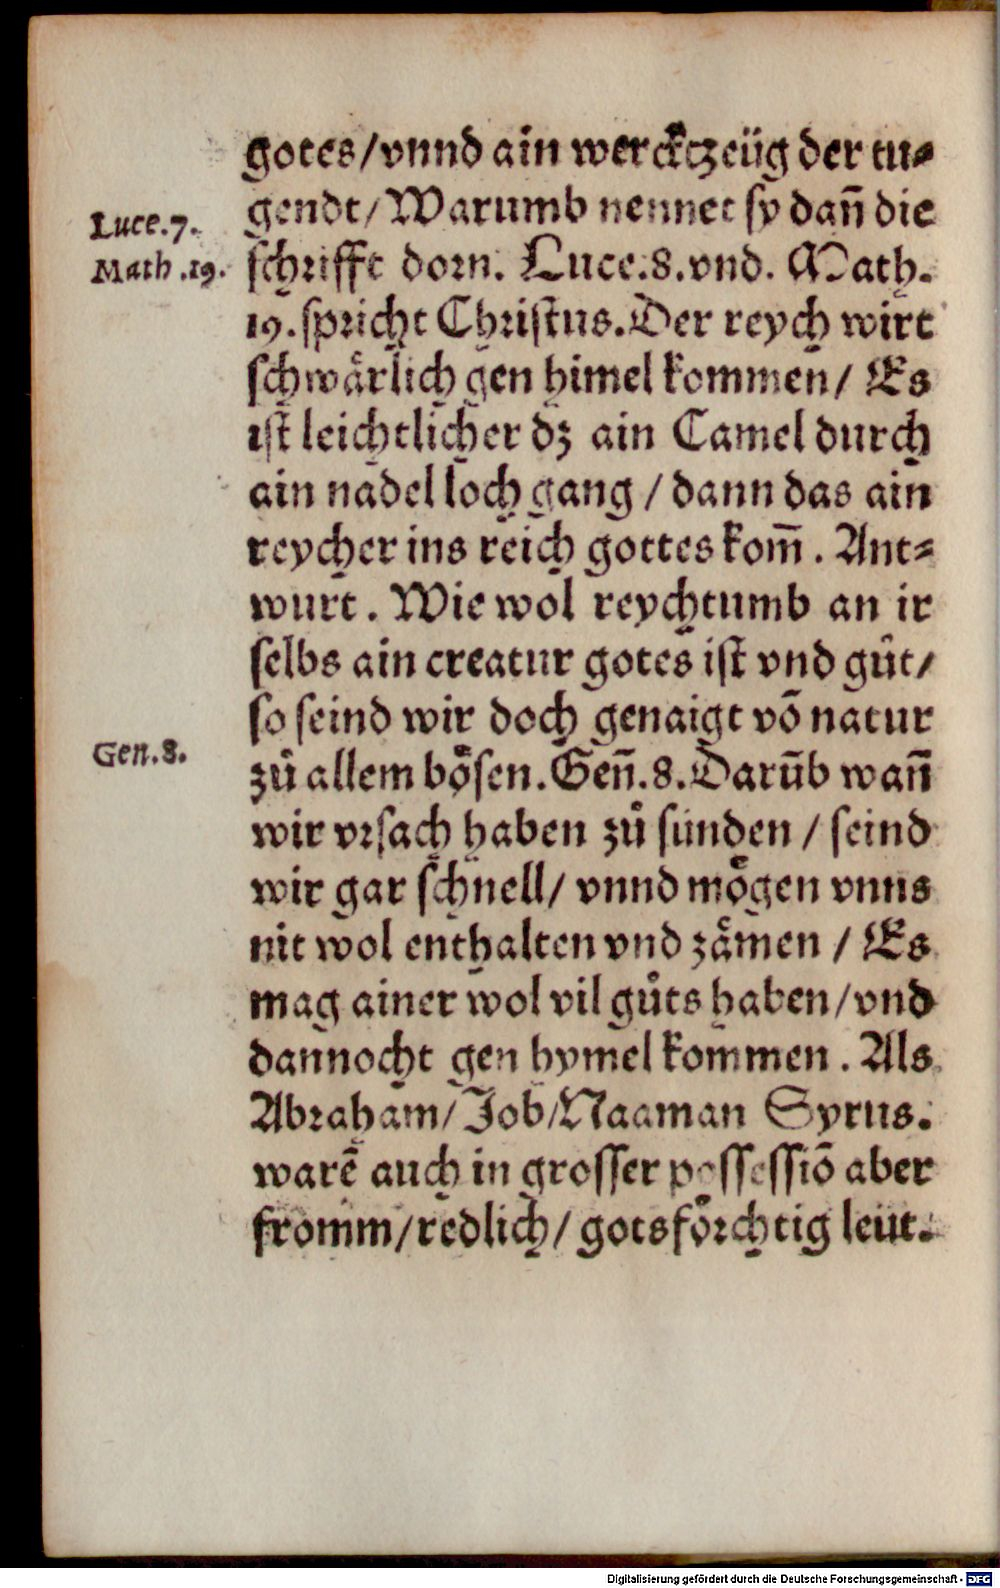 gotes/vnnd ain werckzeüg der tu⸗
Luce.7.
gendt/Warumb nennet sy dañ die
Math.19.
schrifft dorn. Luce.8.vnd. Math.
19.spricht Christus.Der reych wirt
schwaͤrlich gen himel kommen/ Es
ist leichtlicher dz ain Camel durch
ain nadel loch gang/dann das ain
reycher ins reich gottes kom̄. Ant⸗
wurt. Wie wol reychtumb an ir
selbs ain creatur gotes ist vnd guͦt/
so seind wir doch genaigt võ natur
Gen.8.
zuͦ allem boͤsen.Geñ.8.Darũb wañ
wir vrsach haben zuͦ sünden / seind
wir gar schnell/ vnnd moͤgen vnns
nit wol enthalten vnd zaͤmen / Es
mag ainer wol vil guͦts haben/vnd
dannocht gen hymel kommen. Als
Abraham/Job/Naaman Syrus.
warẽ auch in grosser possessiõ aber
fromm/redlich/gotsfoͤrchtig leüt.
Digitalisierung gefördert durch die Deutsche Forschungsgemeinschaft - DFG